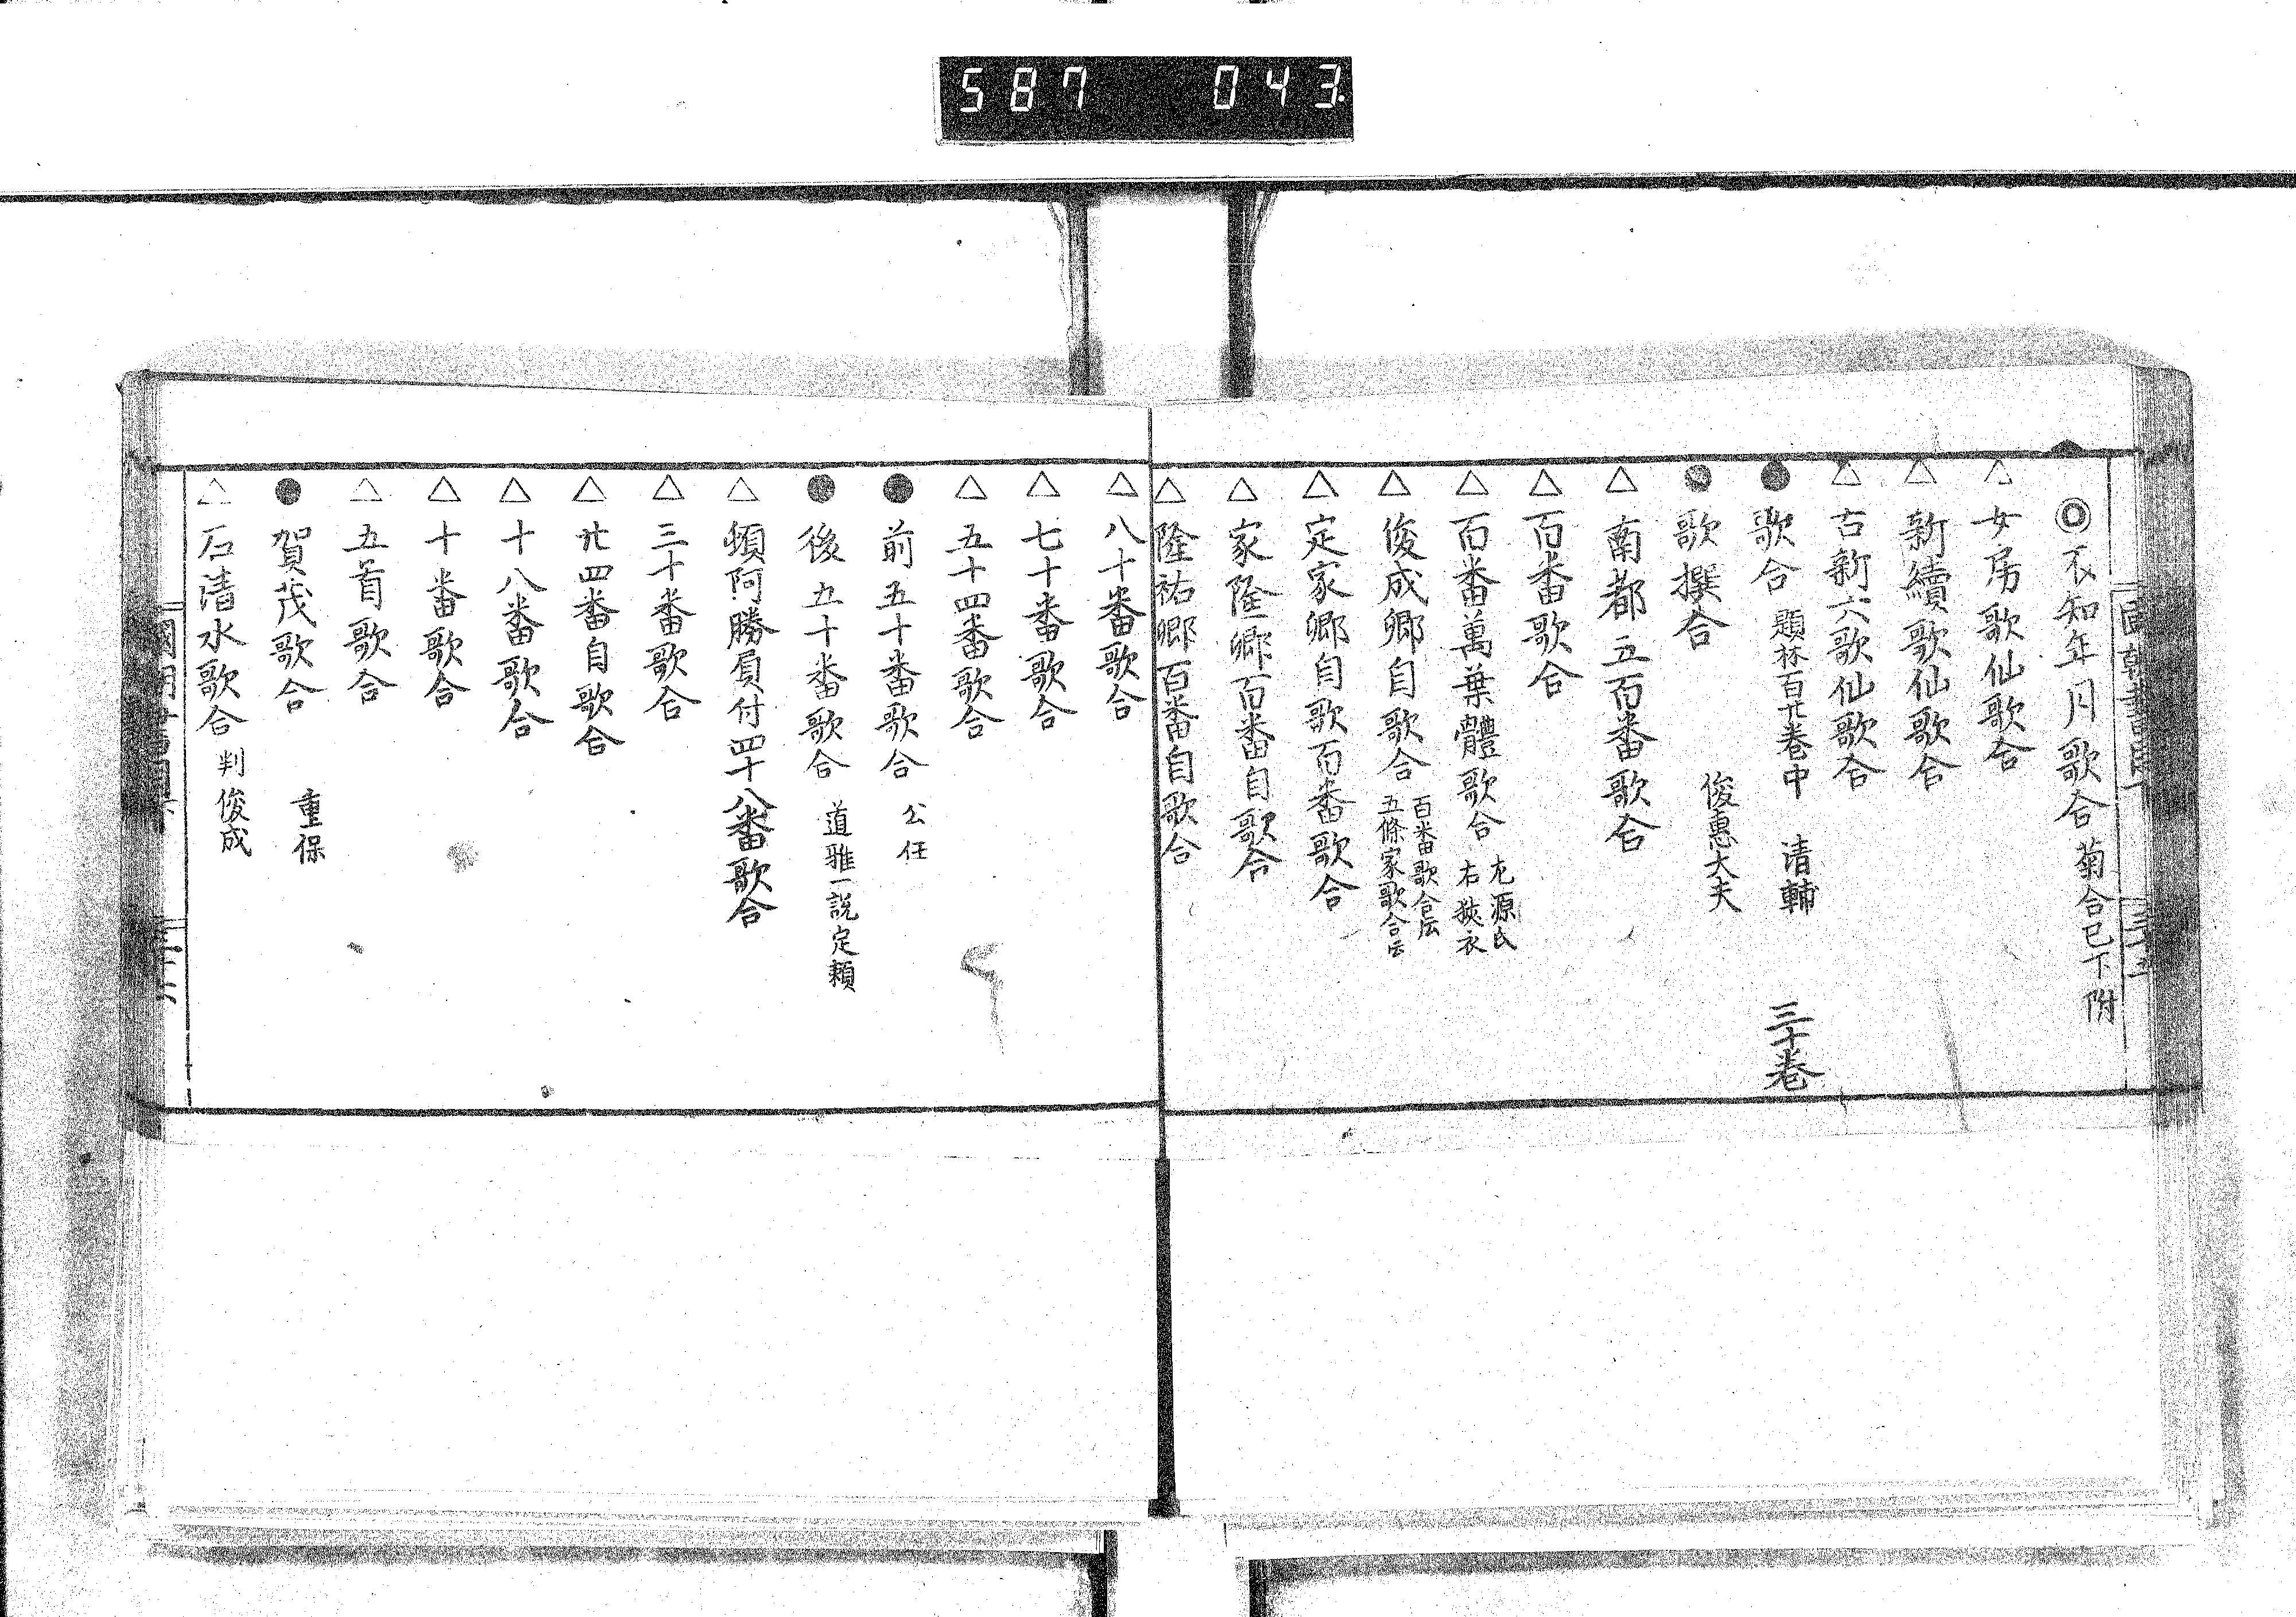 587 043.
◎不知年月歌合 菊合已下附
△女房歌仙歌合
△新續歌仙歌合
△古新六歌仙歌合
●歌合 題林百廿卷中 清輔 三十卷
●歌撰合 俊惠大夫
△南都五百番歌合
△百番歌合
△百番萬葉體歌合 左源氏 右狹衣
△俊成卿自歌合 百番歌合云 五條家歌合云
△定家卿自歌百番歌合
△家隆卿百番自歌合
△隆祐卿百番自歌合
△八十番歌合
△七十番歌合
△五十四番歌合
●前五十番歌合 公任
●後五十番歌合 道雅一說定賴
△頓阿勝負付四十八番歌合
△三十番歌合
△廿四番自歌合
△十八番歌合
△十番歌合
△五首歌合
●賀茂歌合 重保
△石清水歌合 判俊成